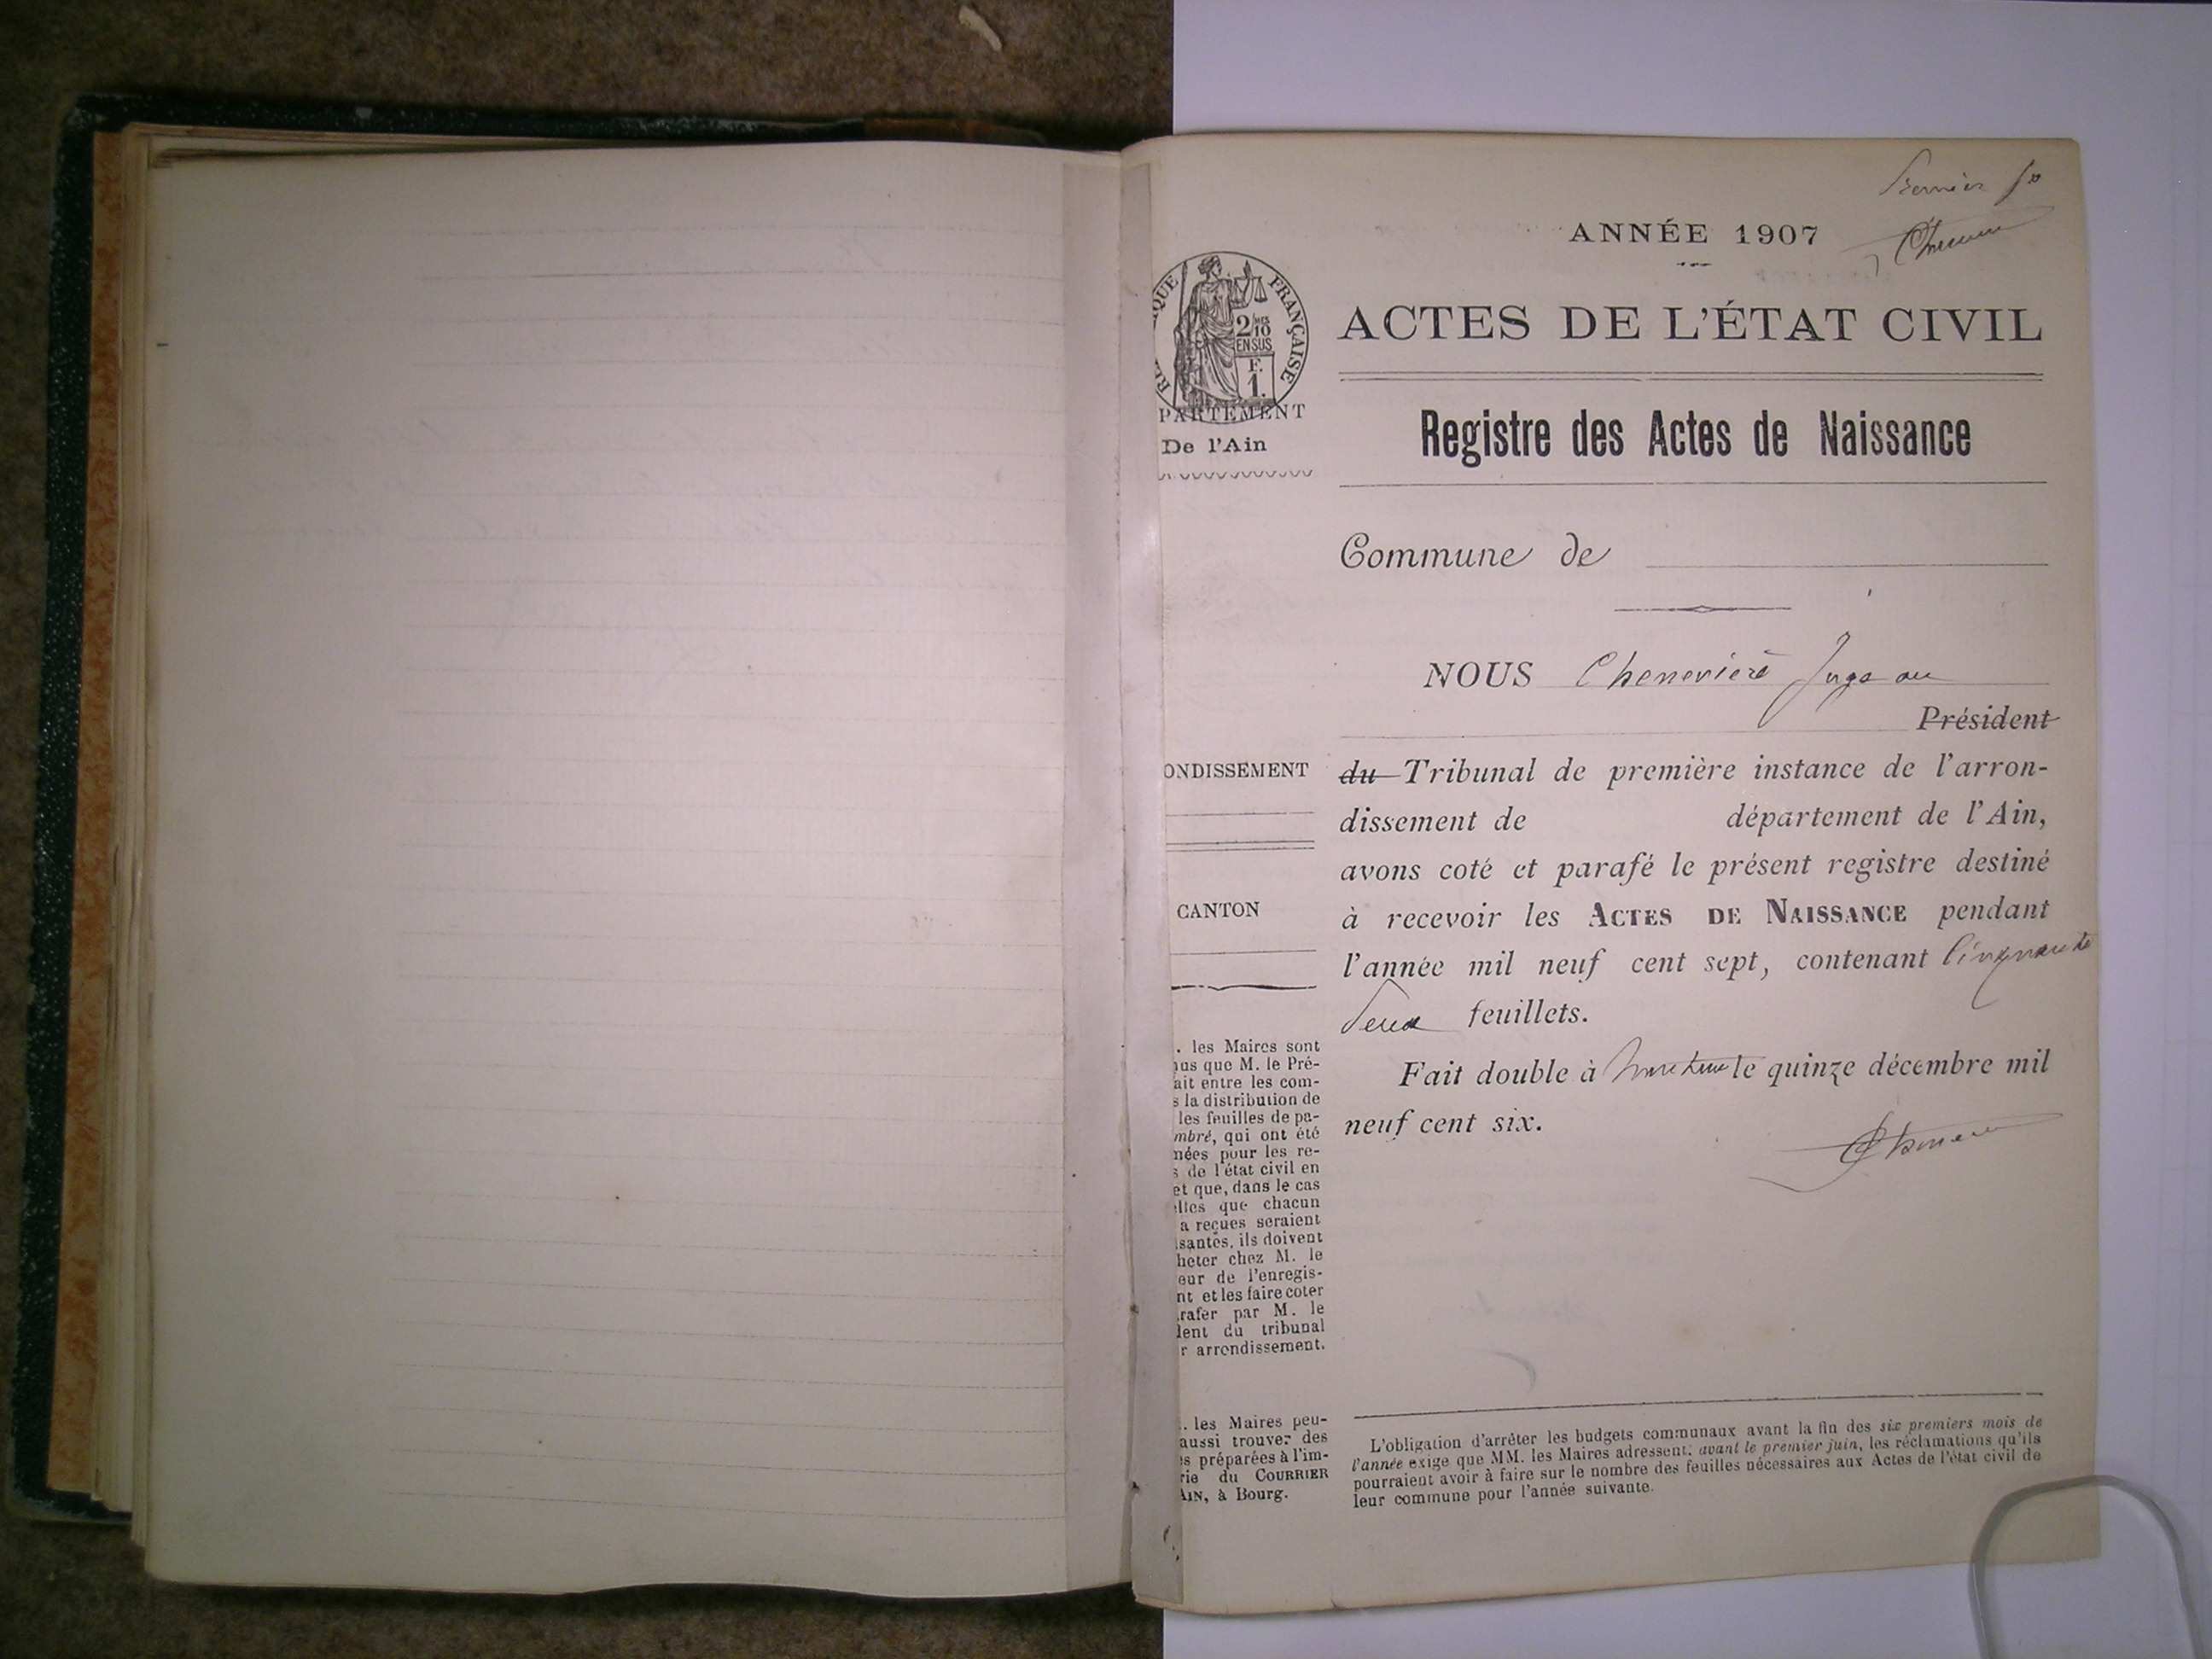 Premier fo
ANNÉE 1907
QUE FRANÇAISE
2/MES 10
EN SUS
F.
1.
ACTES DE L'ÉTAT CIVIL
PARTEMENT
De l'Ain
Registre des Actes de Naissance
Commune de
NOUS Chenevière Juge au
Président
ONDISSEMENT
du Tribunal de première instance de l'arron-
dissement de département de l'Ain,
avons coté et parafé le présent registre destiné
CANTON
à recevoir les ACTES DE NAISSANCE pendant
l'année mil neuf cent sept, contenant Cinquante
deux feuillets.
Fait double à le quinze décembre mil
neuf cent six.
. les Maires sont
us que M. le Pré-
ait entre les com-
s la distribution de
les feuilles de pa-
mbré, qui ont été
nées pour les re-
s de l'état civil en
et que, dans le cas
elles que chacun
a reçues seraient
isantes, ils doivent
heter chez M. le
eur de l'enregis-
nt et les faire coter
rafer par M. le
dent du tribunal
r arrondissement.
. les Maires peu-
aussi trouver des
s préparées à l'im-
rie du COURRIER
AIN, à Bourg.
L'obligation d'arrêter les budgets communaux avant la fin des six premiers mois de
l'année exige que MM. les Maires adressent, avant le premier juin, les réclamations qu'ils
pourraient avoir à faire sur le nombre des feuilles nécessaires aux Actes de l'état civil de
leur commune pour l'année suivante.